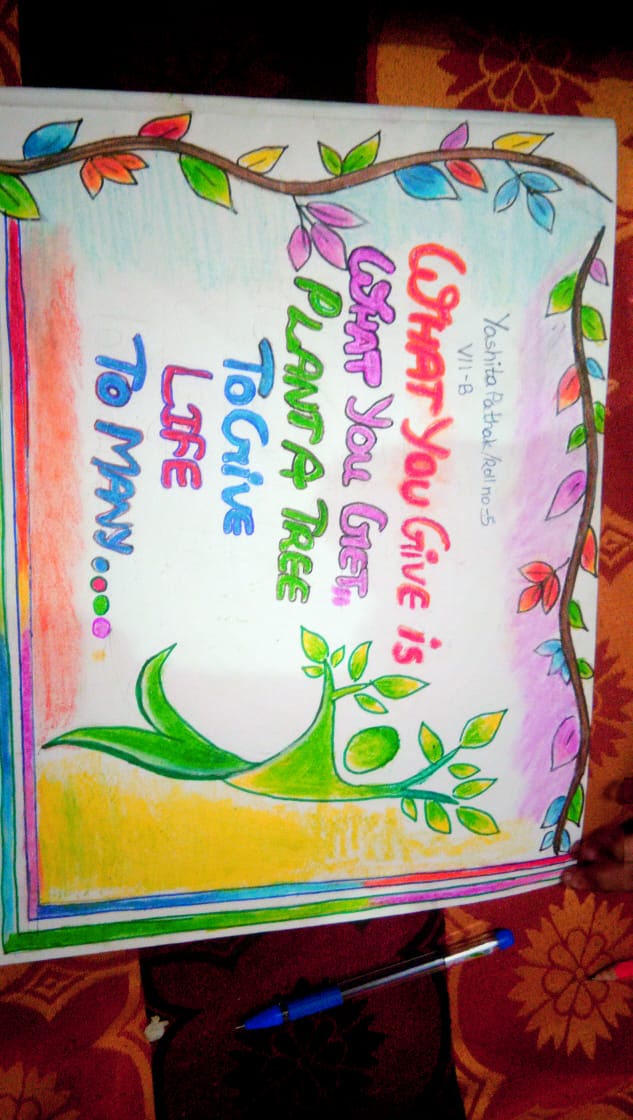 Yashita Pathak/Roll no-5
VII-B
WHAT YOU GIVE iS
WHAT YOU GET,,
PLANT A TREE
TO GIVE
LIFE
TO MANY....